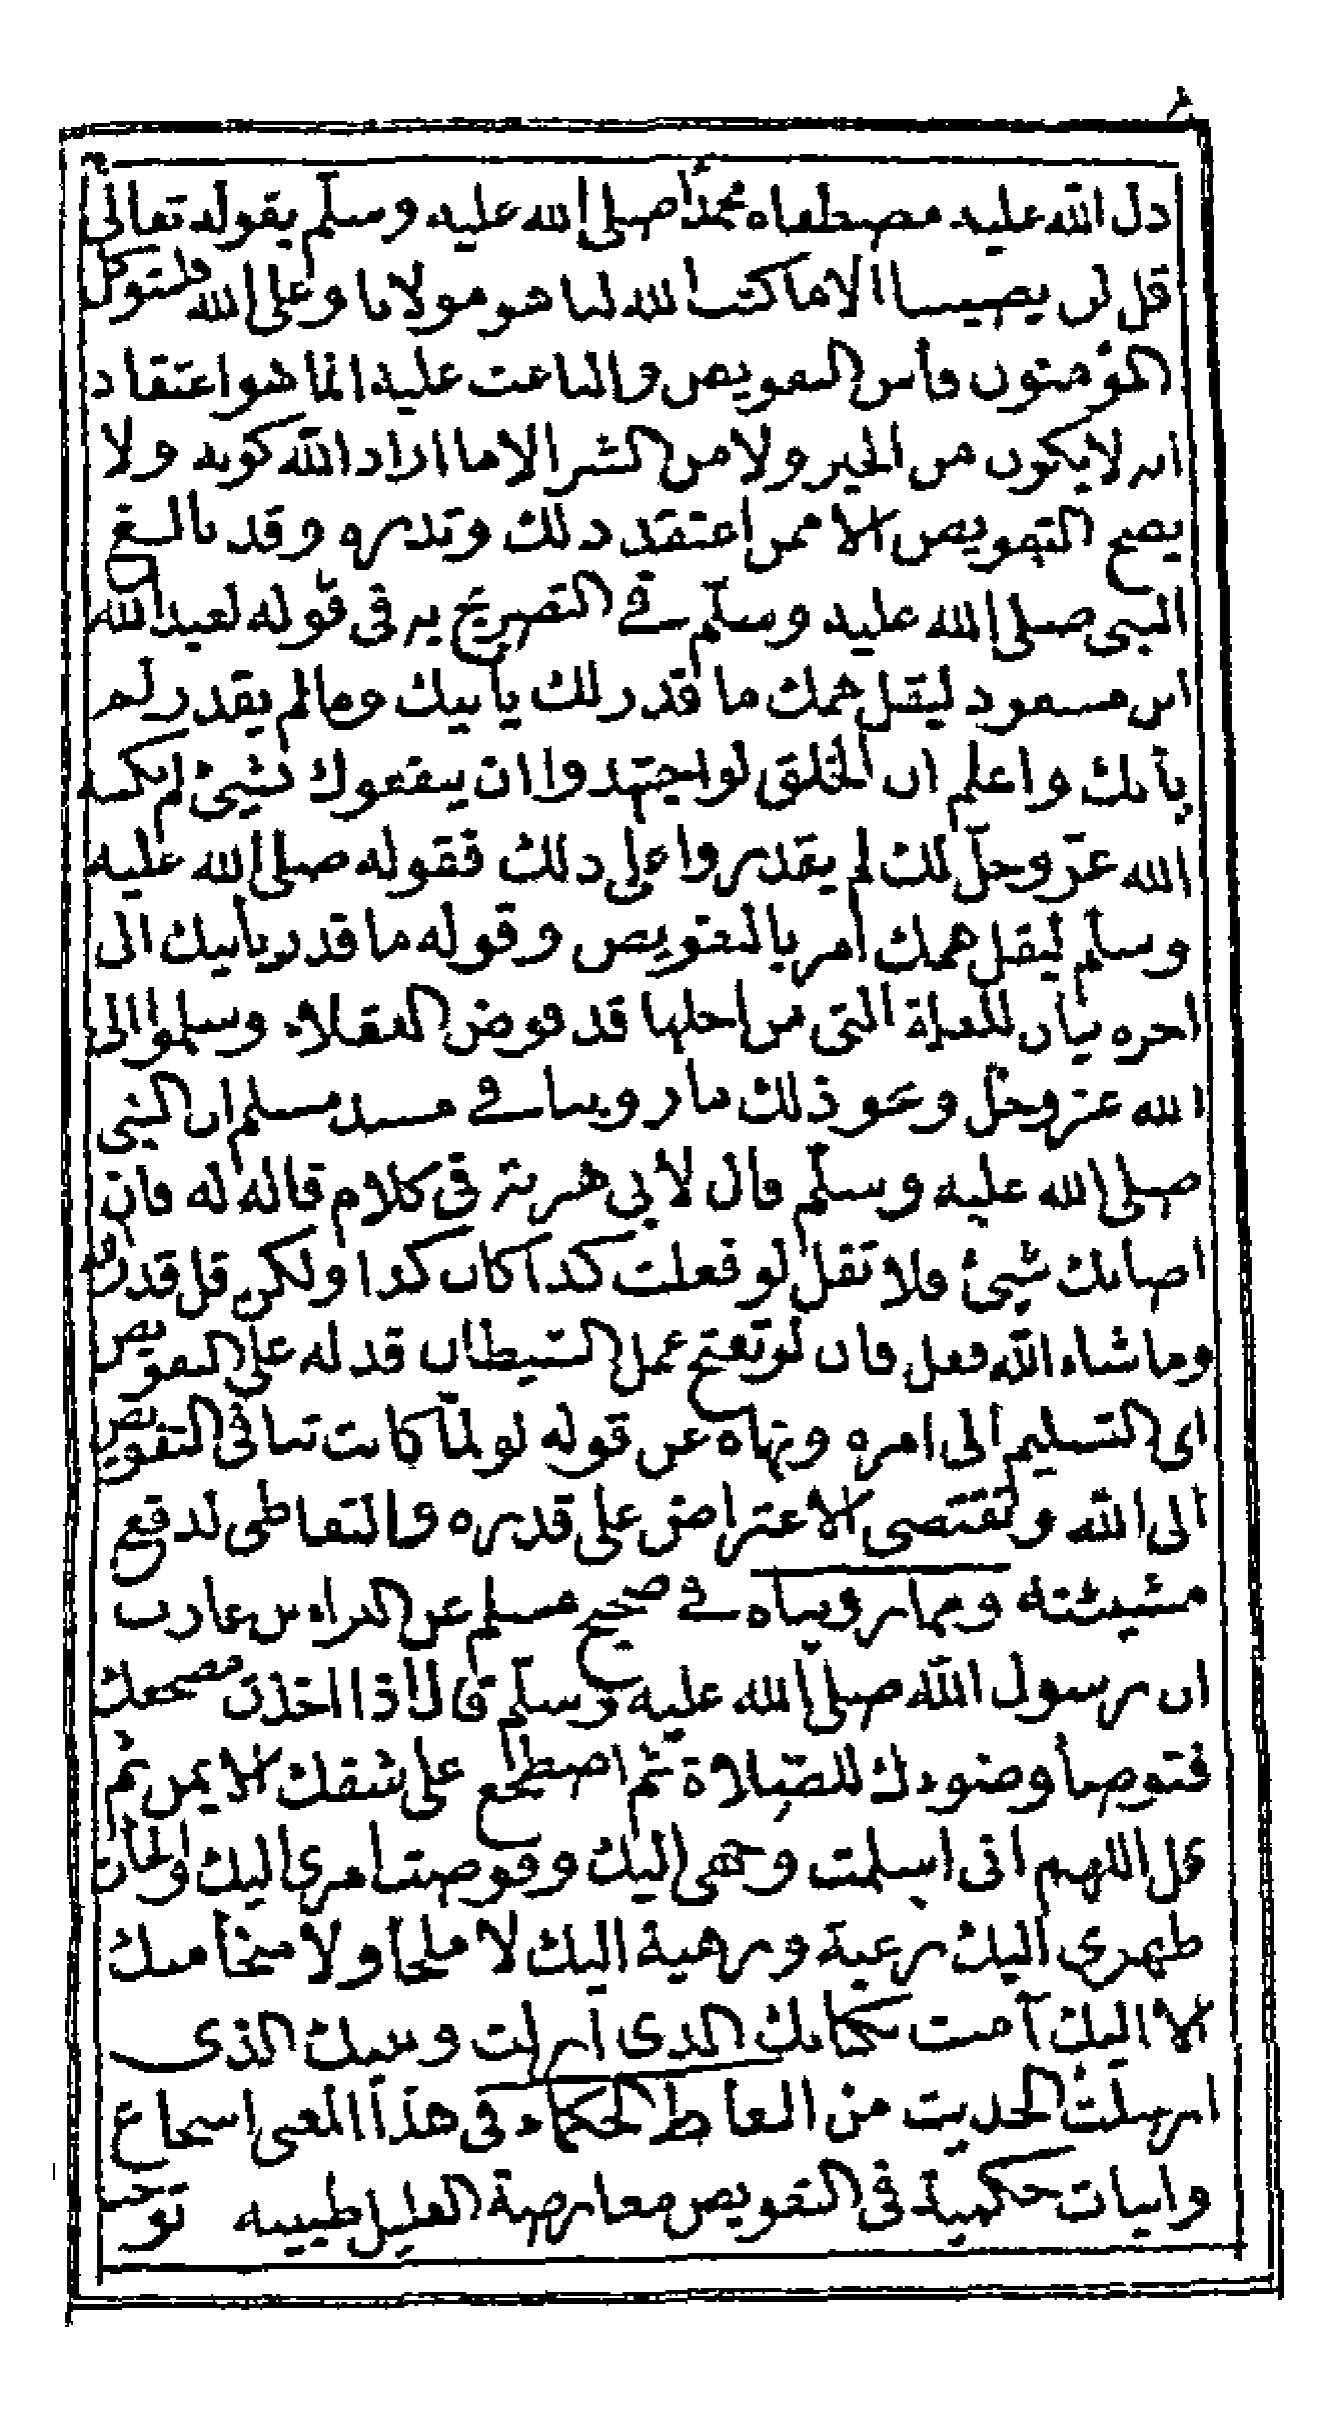 دل الله عليه مصطفاه محمدا صلى الله عليه وسلم بقوله تعالى
قل لن يصيبنا الا ما كتب الله لنا هو مولانا وعلى الله فليتوكل
المؤمنون وأس التفويض والباعث عليه انما هو اعتقاد
انه لا يكون من الخير ولا من الشر الا ما اراد الله كونه ولا
يصح التفويض الا ممن اعتقد ذلك وتدبره وقد بالغ
النبي صلى الله عليه وسلم في التصريح به في قوله لعبد الله
ابن مسعود ليقل همك ما قدر لك يأتيك وما لم يقدر لم
يأتك واعلم ان الخلق لو اجتهدوا ان ينفعوك بشيئ لم يكتبه
الله عز وجل لك لم يقدروا على ذلك فقوله صلى الله عليه
وسلم ليقل همك أمر بالتفويض وقوله ما قدر يأتيك الى
اخره بيان للعلة التي من اجلها قد فوض العقلاء وسلموا الى
الله عز وجل ونحو ذلك ما روينا في مسند مسلم ان النبي
صلى الله عليه وسلم قال لأبي هريرة في كلام قاله له فان
اصابك شيئ فلا تقل لو فعلت كذا كان كذا ولكن قل قدر الله
وما شاء الله فعل فان لو تفتح عمل الشيطان قد له على التفويض
اى التسليم الى امره ونهاه عن قوله لو لما كانت تنافى التفويض
الى الله وتقتضى الاعتراض على قدره والتعاطى لدفع
مشيئته ومما رويناه في صحيح مسلم عن البراء بن عازب
ان رسول الله صلى الله عليه وسلم قال اذا اخذت مضجعك
فتوضأ وضوءك للصلاة ثم اضطجع على شقك الايمن ثم
قل اللهم انى اسلمت وجهى اليك وفوضت امرى اليك والجأت
ظهرى اليك رغبة ورهبة اليك لا ملجأ ولا منجأ منك
الا اليك آمنت بكتابك الذى انزلت ونبيك الذى
ارسلت الحديث من الفاظ الحكماء في هذا المعنى اسجاع
وابيات حكمية فى التفويض معارضة العليل طبيبه توجب